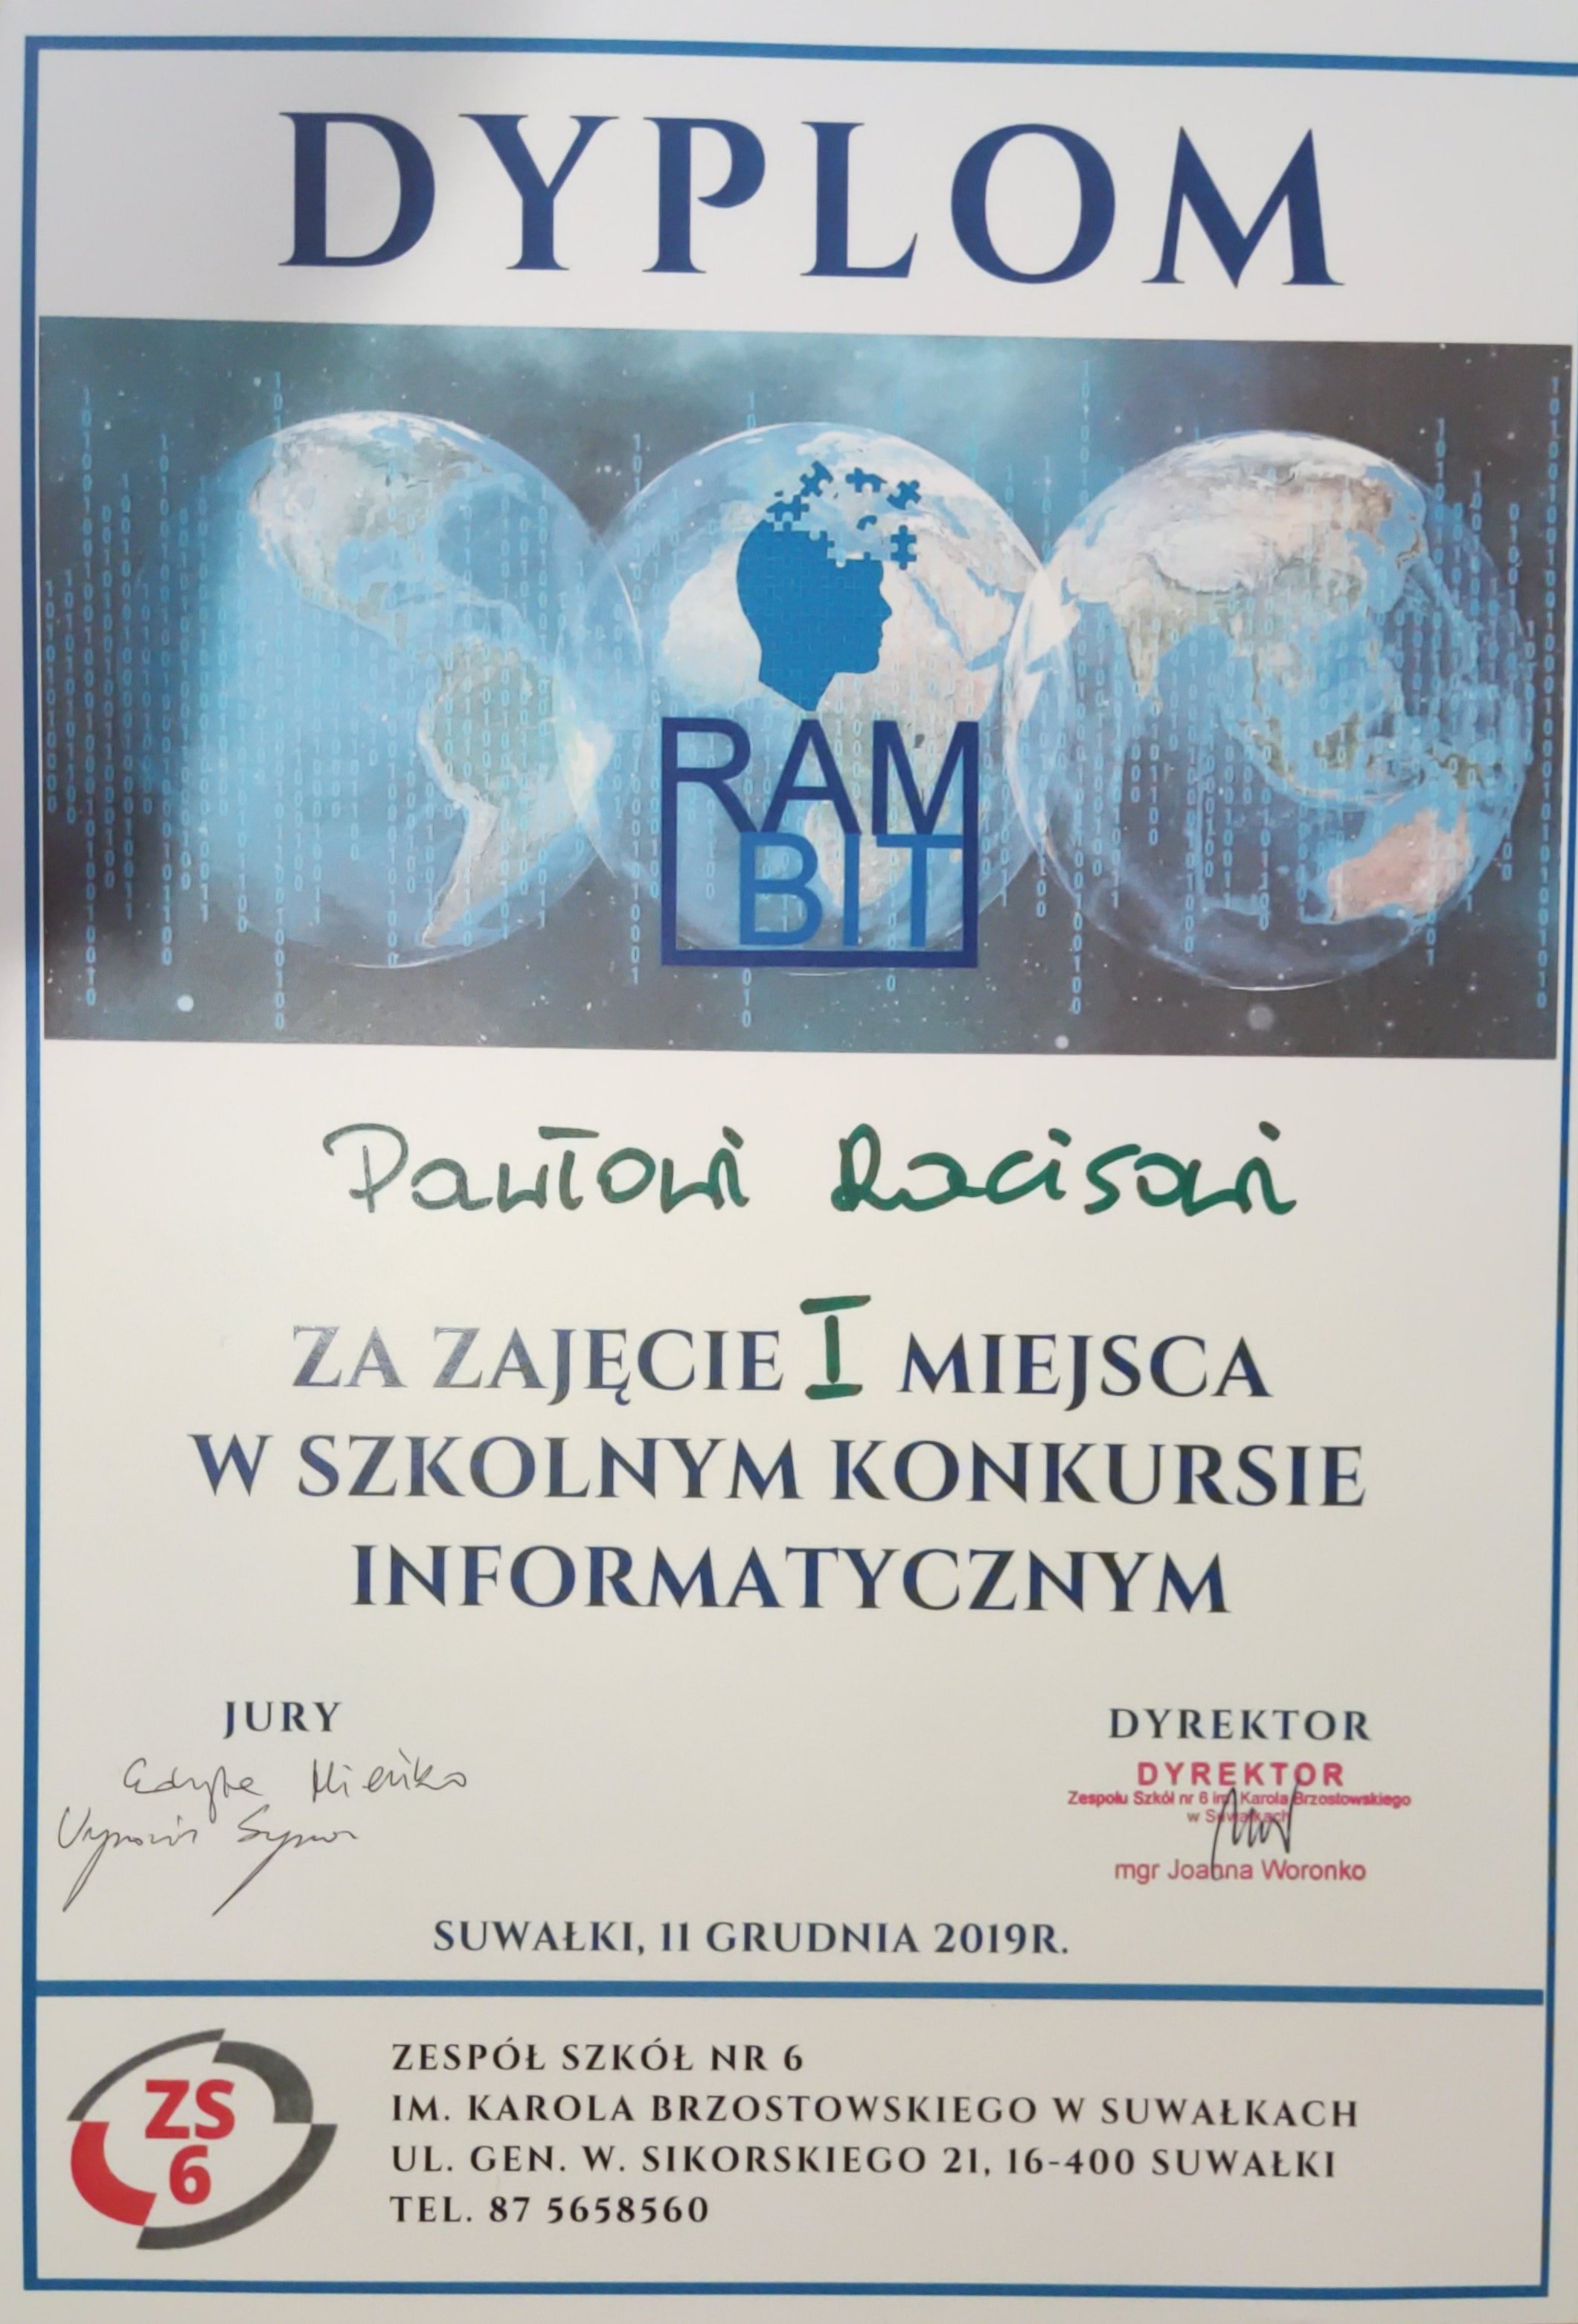 DYPLOM
RAM
BIT
Pawłowi Racisowi
ZA ZAJĘCIE I MIEJSCA
W SZKOLNYM KONKURSIE
INFORMATYCZNYM
JURY
Edyta
DYREKTOR
DYREKTOR
Zespołu Szkół nr 6 im. Karola Brzostowskiego
w Suwałkach
mgr Joanna Woronko
SUWAŁKI, 11 GRUDNIA 2019R.
ZS
6
ZESPÓŁ SZKÓŁ NR 6
IM. KAROLA BRZOSTOWSKIEGO W SUWAŁKACH
UL. GEN. W. SIKORSKIEGO 21, 16-400 SUWAŁKI
TEL. 87 5658560